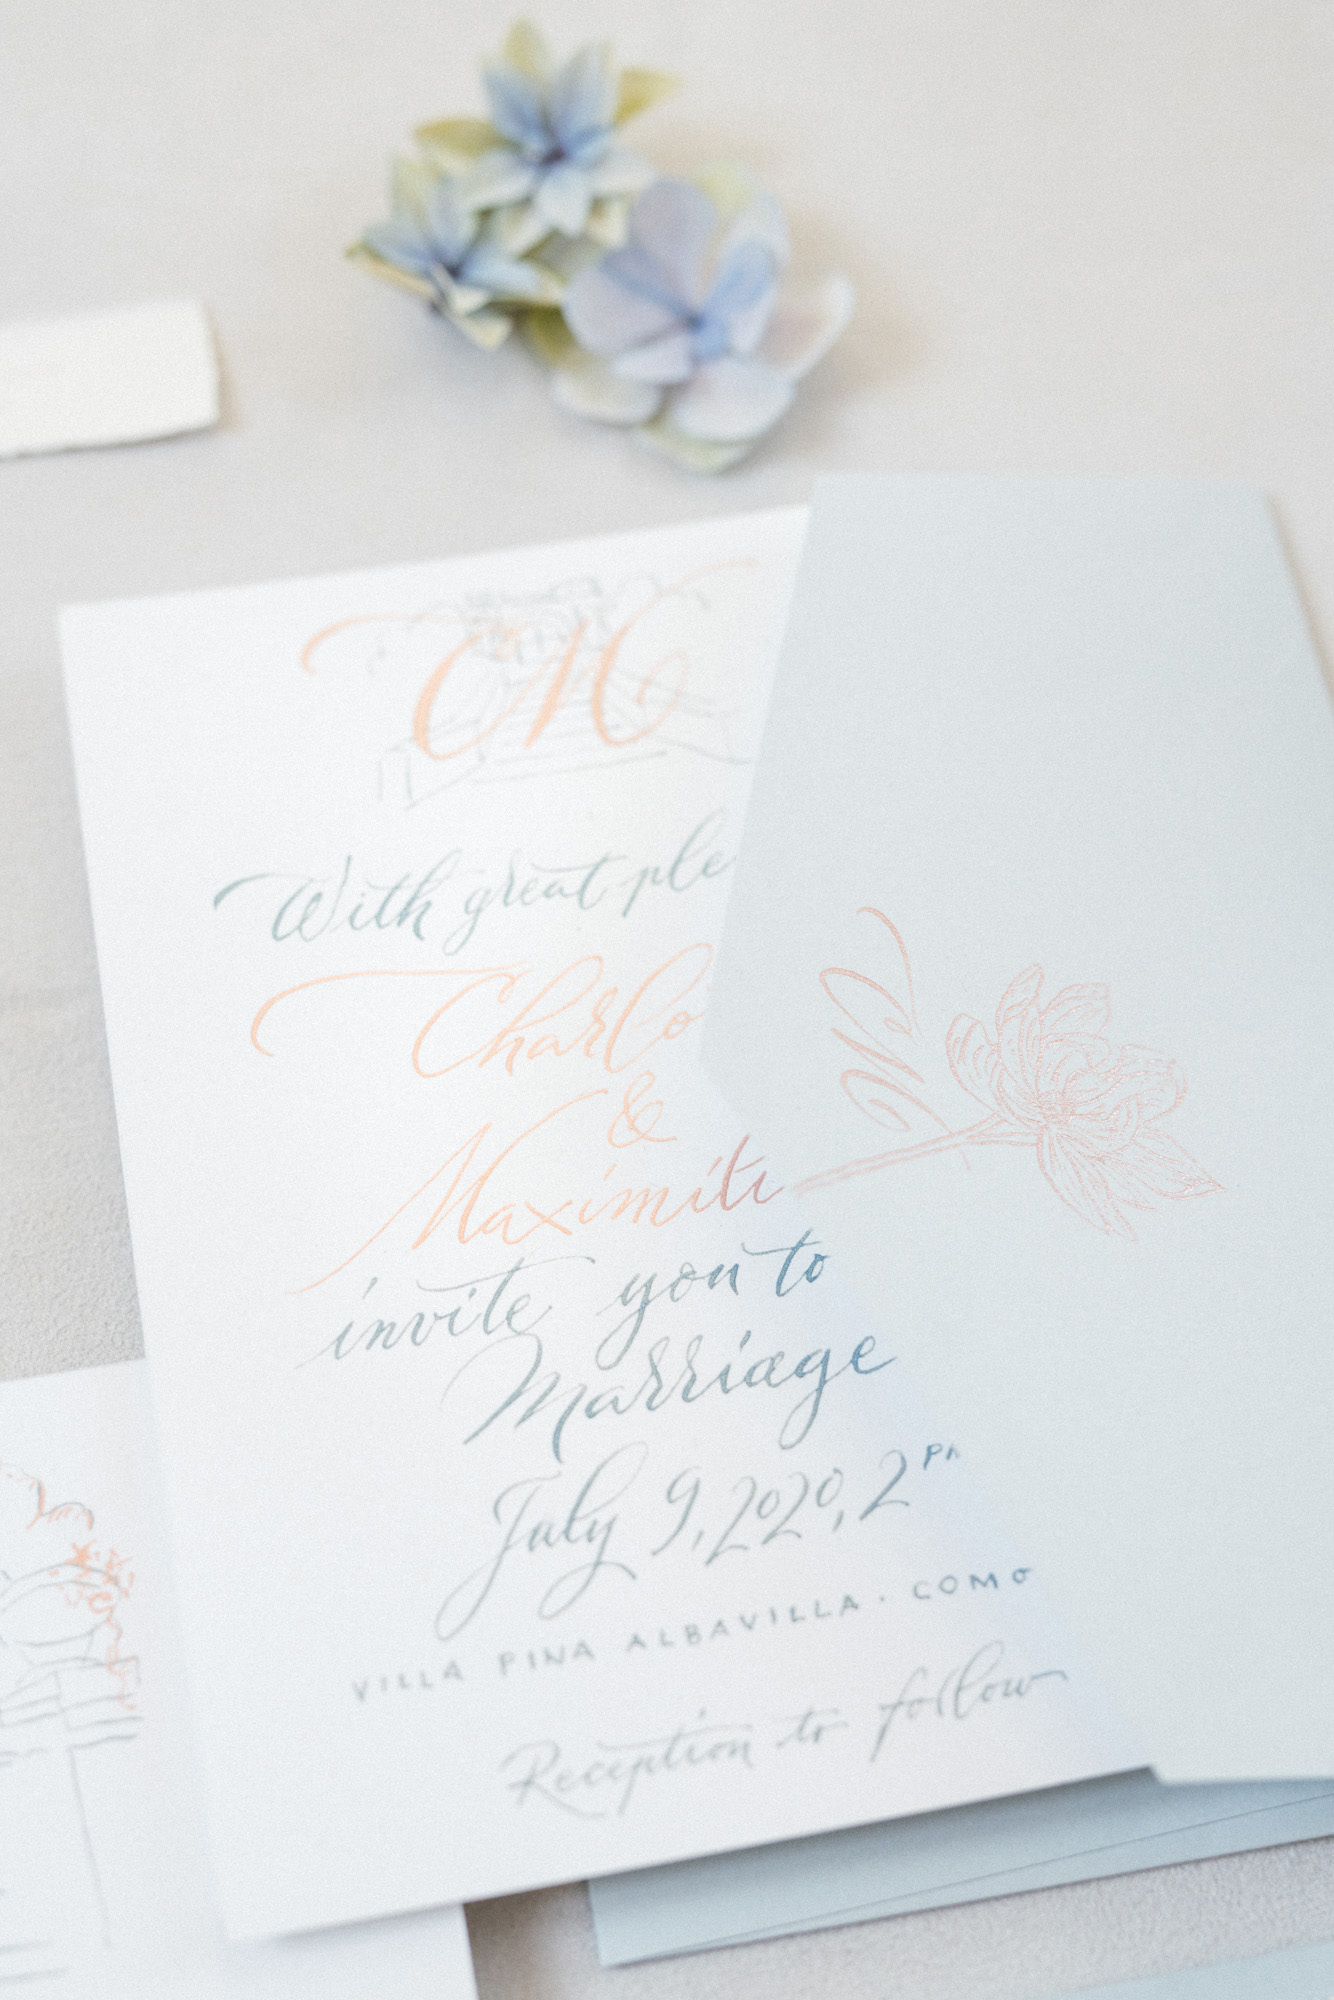 CM
With great ple
Charlo
&
Maximili
invite you to
Marriage
July 9, 2020, 2 PM
VILLA PINA ALBAVILLA · COMO
Reception to follow
CM